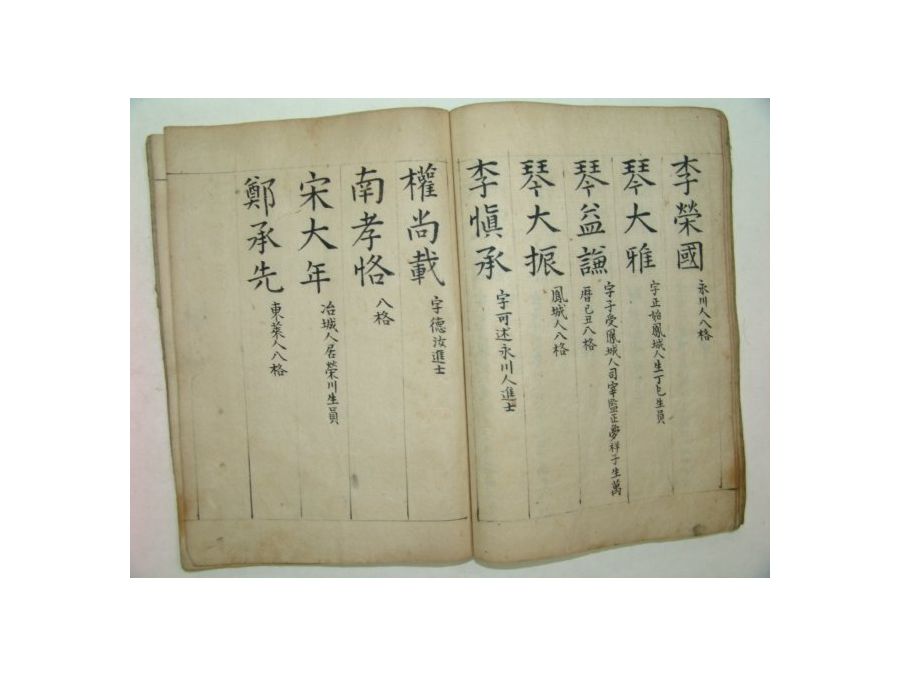 李榮國 永川人八格
琴大雅 字正始鳳城人生丁巳生員
琴益謙 字子受鳳城人司宰監正夢祥子生萬
曆己丑八格
琴大振 鳳城人八格
李愼承 字可述永川人進士
權尚載 字德汝進士
南孝恪 八格
宋大年 冶城人居榮川生員
鄭承先 東萊人八格